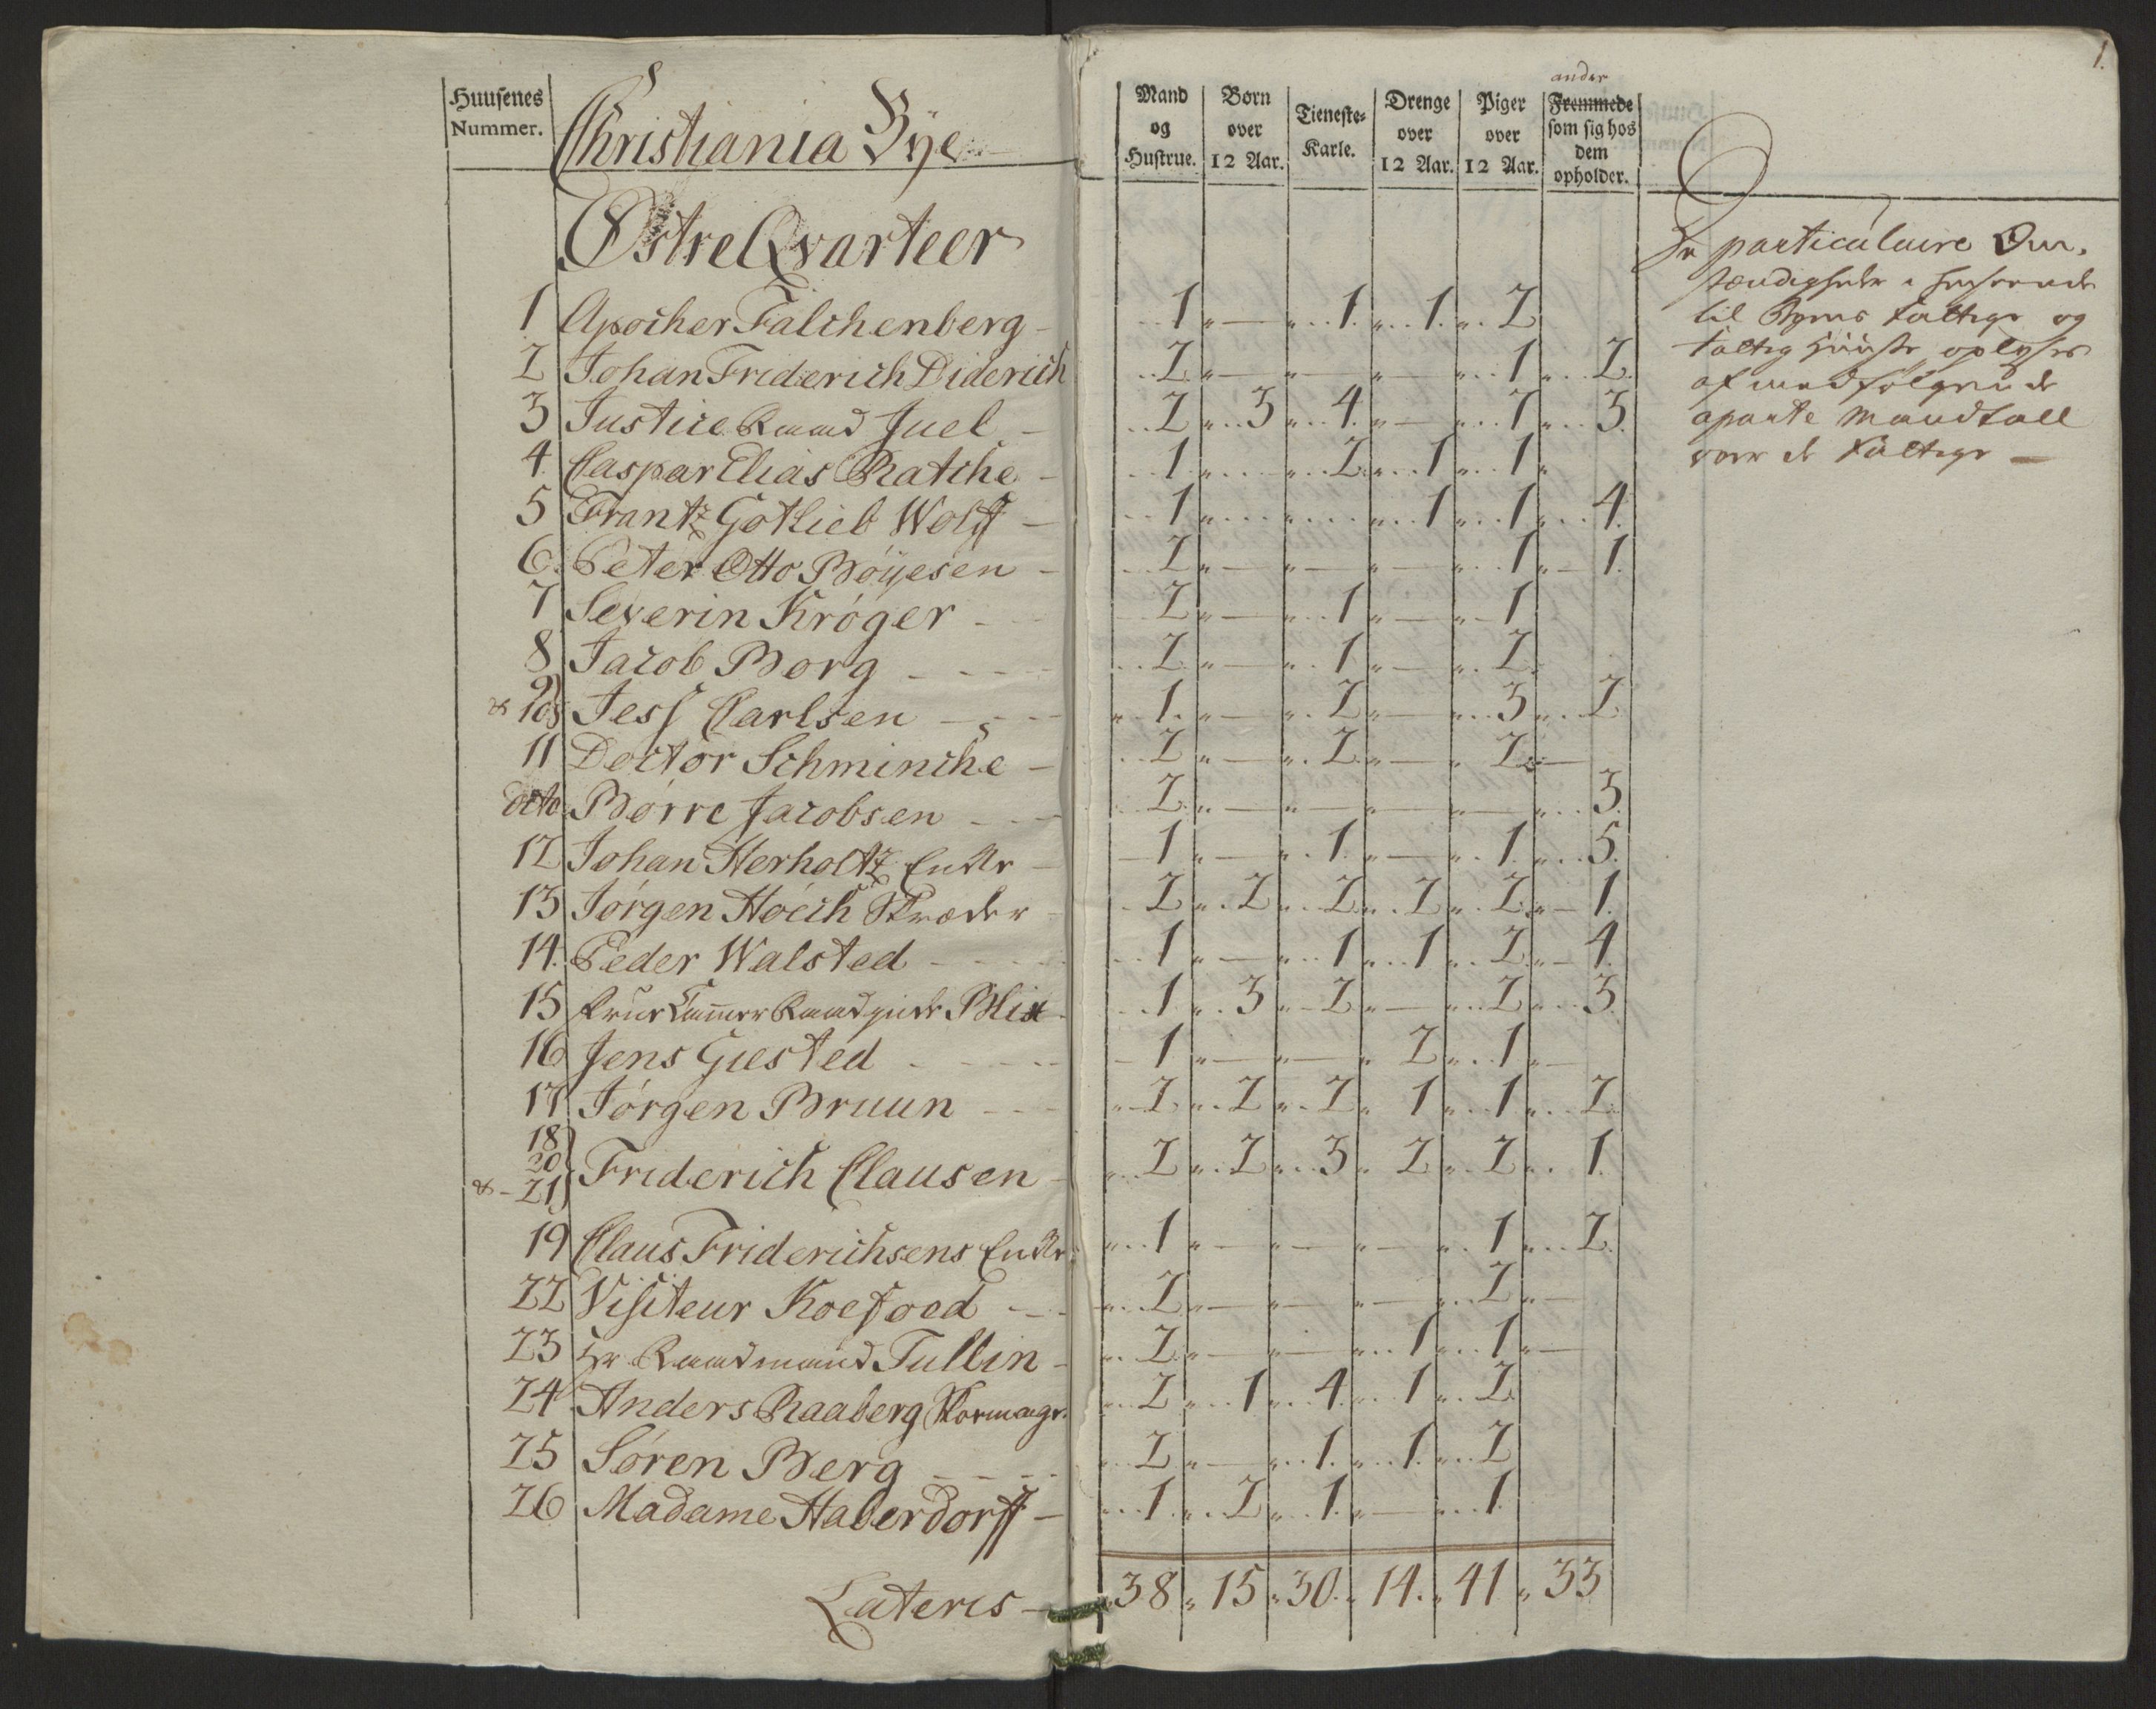 1.
Huusenes Nummer.
Christiania Bye
Mand og Hustrue. Børn over 12 Aar. Tieneste-Karle. Drenge over 12 Aar. Piger over 12 Aar. ander Fremmede som sig hos dem opholder.
Østre Qvarteer
1 Apother Falchenberg - 1 " — " 1. " 1. " 2
2 Johan Friderich Diderich 2 " — " — " — " 1 " 2.
3 Justice Raad Juel - 2 " 3 " 4. " — " 1 " 3.
4. Caspar Elias Ratche - 1 " 2 " 1 " 1 "
5 Frantz Gotlieb Wolff - 1 " " " 1 " 1 " 4.
6. Peter Otto Böÿesen - 2 " — " — " — " 1 " — 1.
7 Severin Krøger - 2 " — " 1 " — " 1
8 Jacob Borg - 2 " — " 1 " — " 2.
9 & 10 Jess Carlsen - " 1. " — " 2 " — " 3 " 2
11 Doctor Schminche - 2 " — " 2 " — " 2 " —
dito Børre Jacobsen - 2 " — " — " — " — " 3.
12 Johan Herholtz Enke - 1 " — " 1. " — " 1. " 5.
13 Jørgen Höich Skræder 2 " 2 " 2 " 2 " 2 " — 1.
14. Peder Walsted - 1 " — " 1 " 1 " 2 " — 4.
15 Frue Cammer Raadginde Blix 1 " 3 " 2 " — " 2 " 3
16 Jens Giested - 1 " — " — " 2 " 1 " —
17 Jørgen Bruun - 2 " 2 " 2 " 1 " 1 " 2
18 20 & 21 Friderich Clausen - 2 " 2 " 3 " 2 " 2 " 1.
19 Claus Friderichsens Enke 1 " — " — " — " 1 " 2.
22 Visiteur Koefoed - 2 " — " — " — " 2 " —
23 Hr Raadmand Tullin - 2 " — " — " 1 " 1 " —
24 Anders Raaberg Skomagr. 2 " 1 " 4. " 1 " 2
25 Søren Berg - 2 " — " 1. " 1. " 2
26 Madame Haberdorff - 1 " 2 " 1. " — " 1.
Lateris - 38 " 15 " 30. " 14. " 41 " 33
De particulaire Om-
stændigheder i henseende
til Byens fattige og
fattig Huuse oplyses
af medfølgende
aparte Mandtall
over de fattige —